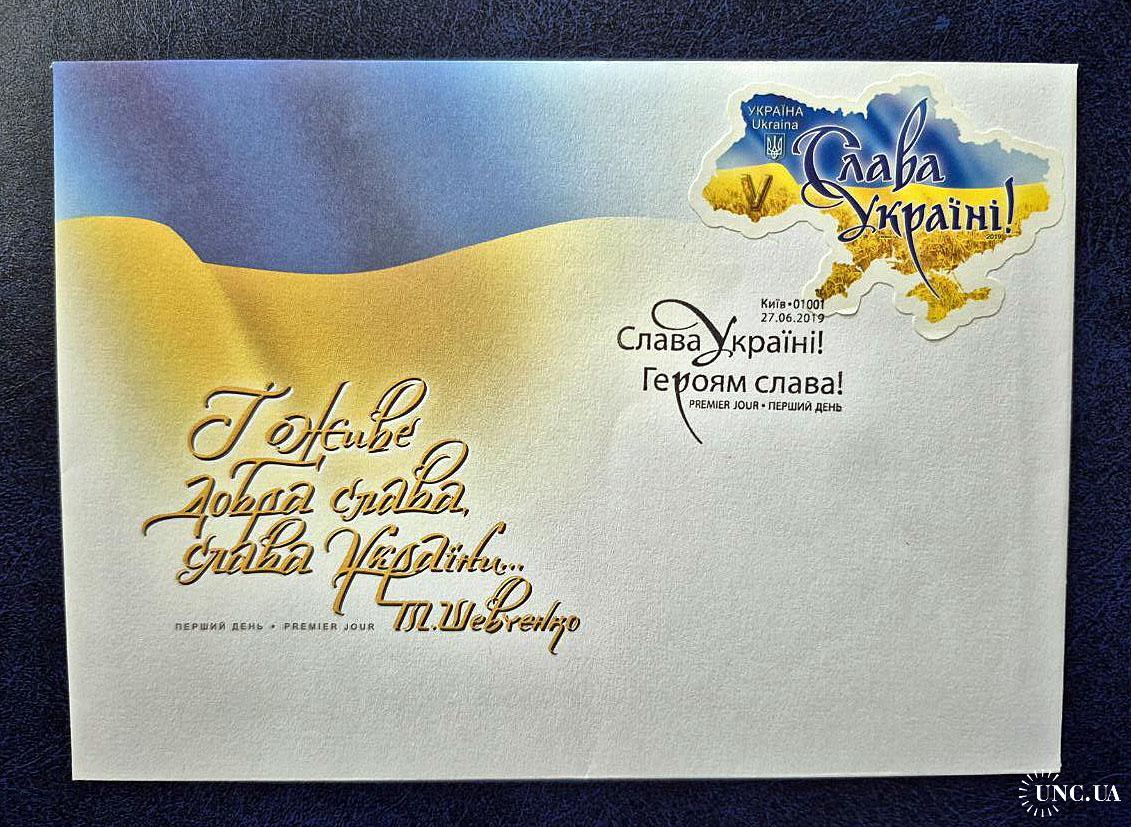 УКРАЇНА
Ukraina
V
Слава
Україні!
2019
Київ•01001
27.06.2019
Слава Україні!
Героям слава!
PREMIER JOUR • ПЕРШИЙ ДЕНЬ
І оживе
добра слава,
слава України...
Т.Шевченко
ПЕРШИЙ ДЕНЬ • PREMIER JOUR
UNC.UA